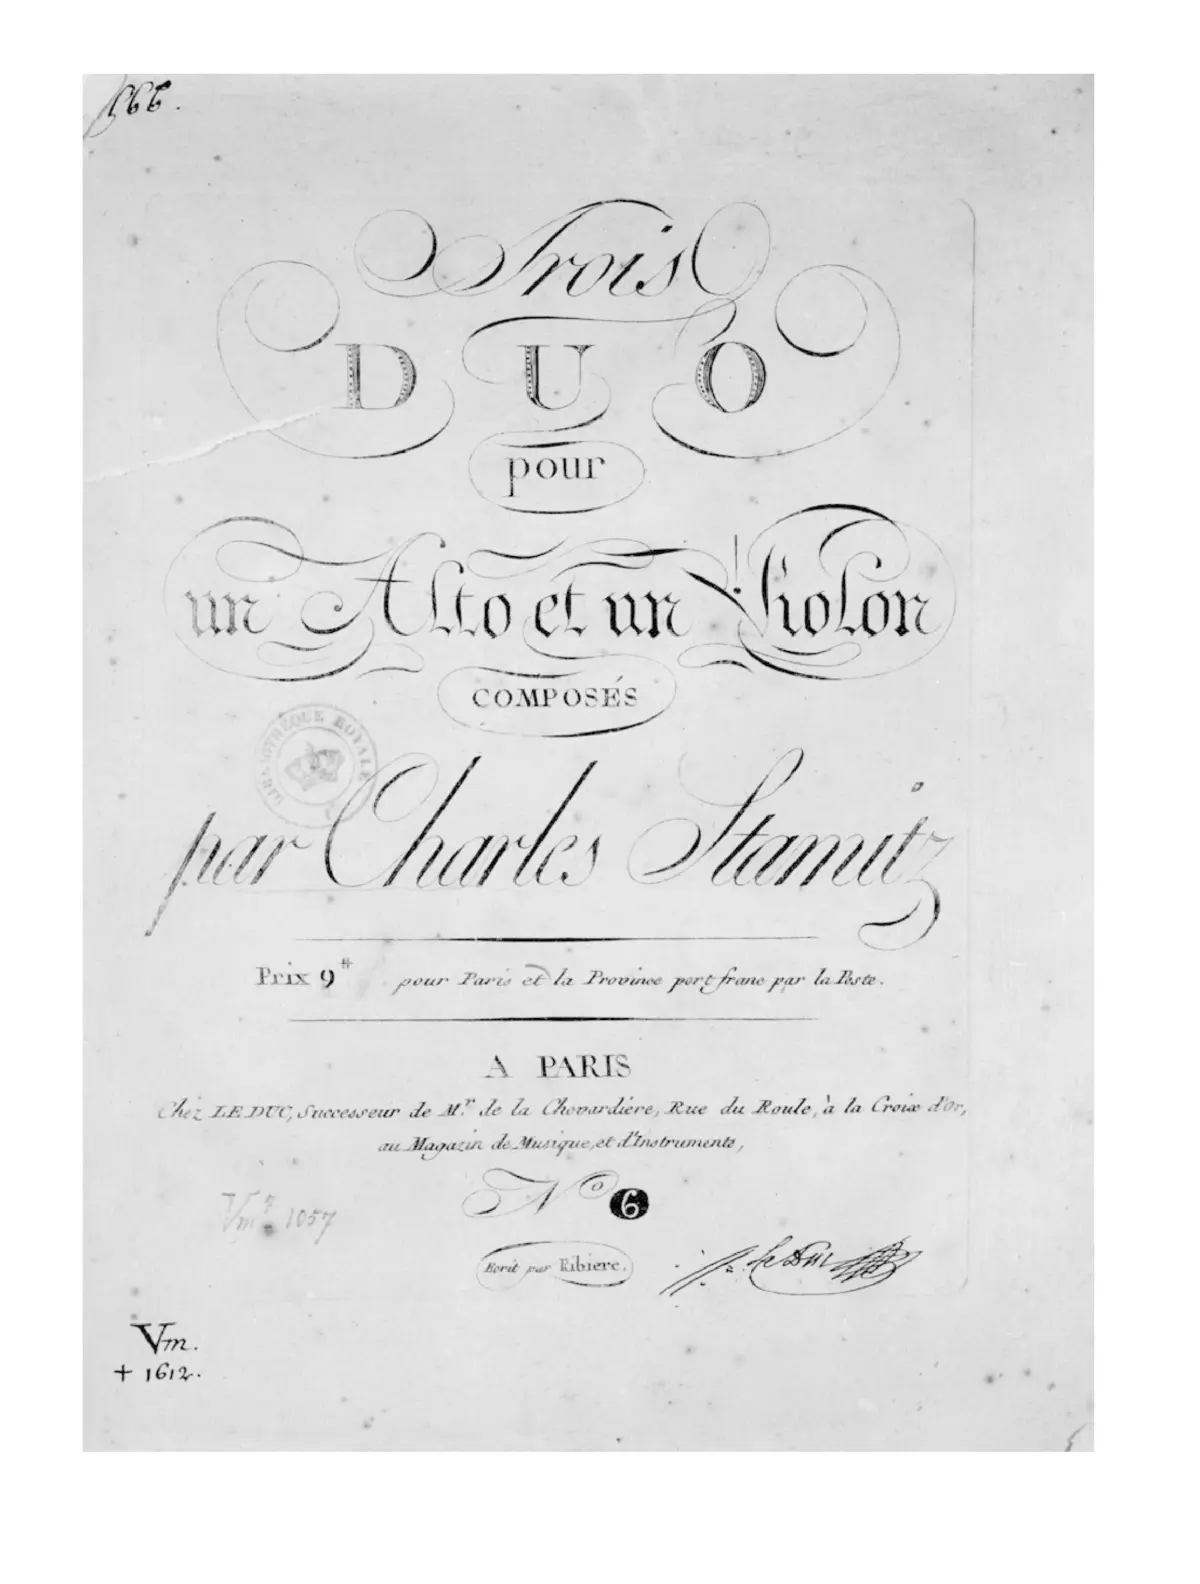 Trois
DUO
pour
un Alto et un Violon
COMPOSÉS
BIBLIOTHÈQUE ROYALE
par Charles Stamitz
Prix 9# pour Paris et la Province port franc par la Poste.
A PARIS
Chez LE DUC, Successeur de Mr. de la Chevardiere, Rue du Roule, à la Croix d'Or,
au Magazin de Musique, et d'Instruments,
No 6
Vm7 1057
Ecrit par Ribiere.
Le Duc
Vm.
+ 1612.